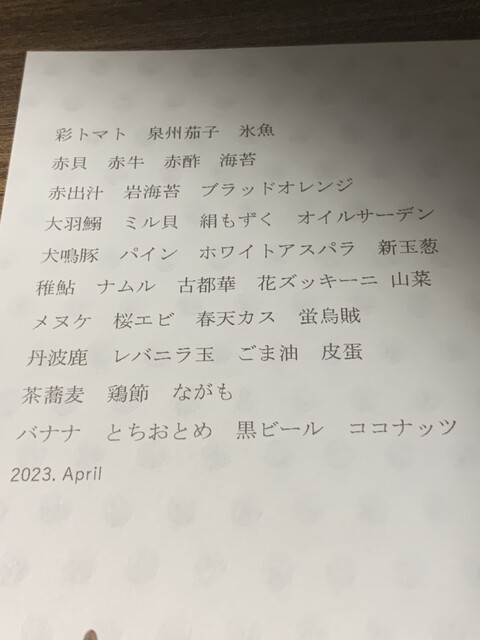 彩トマト　泉州茄子　氷魚
赤貝　赤牛　赤酢　海苔
赤出汁　岩海苔　ブラッドオレンジ
大羽鰯　ミル貝　絹もずく　オイルサーデン
犬鳴豚　パイン　ホワイトアスパラ　新玉葱
稚鮎　ナムル　古都華　花ズッキーニ　山菜
メヌケ　桜エビ　春天カス　蛍烏賊
丹波鹿　レバニラ玉　ごま油　皮蛋
茶蕎麦　鶏節　ながも
バナナ　とちおとめ　黒ビール　ココナッツ
2023. April